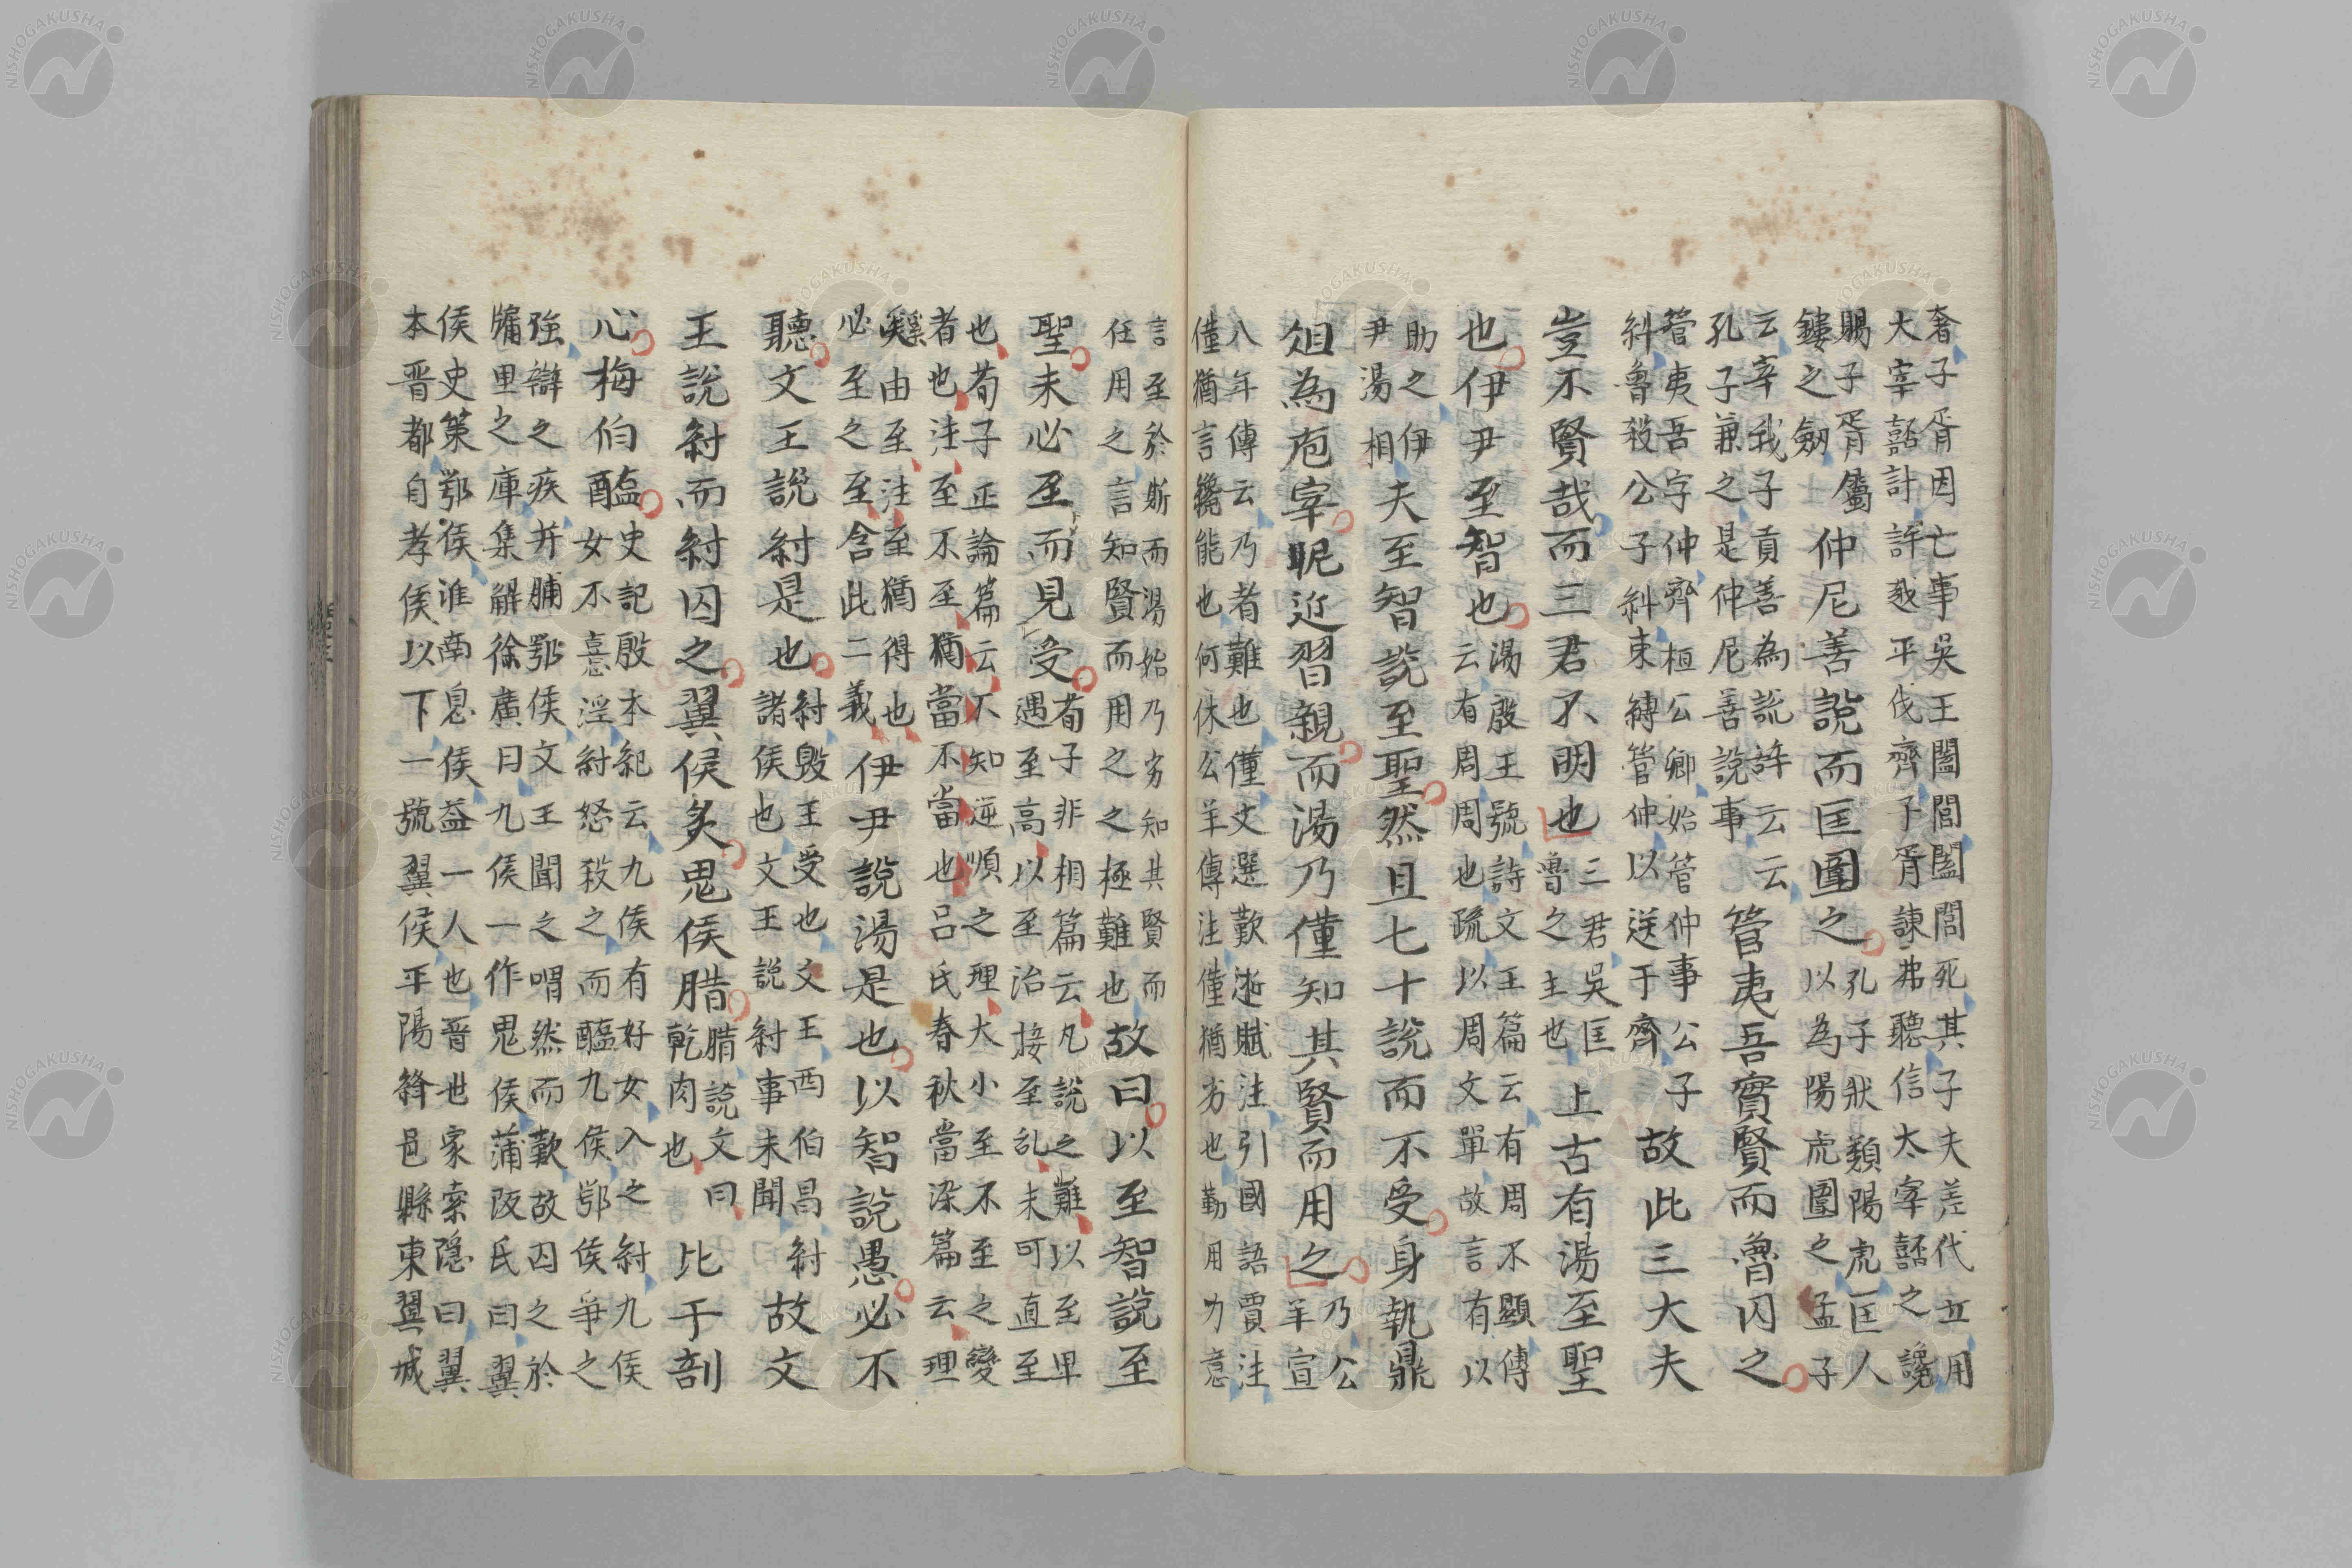 奢子胥因亡事吳王闔閭闔閭死其子夫差代立用
大宰嚭計許越平伐齊子胥諫弗聽信太宰嚭之讒
賜子胥屬
鏤之劒
仲尼善說而匡圍之
孔子狀類陽虎匡人
以為陽虎圍之孟子
云宰我子貢善為說辞云云
孔子兼之是仲尼善說事
管夷吾實賢而魯囚之
管夷吾字仲齊桓公卿始管仲事公子
糾魯殺公子糾束縛管仲以送于齊
故此三大夫
豈不賢哉而三君不明也
三君吳匡
魯之主也
上古有湯至聖
也伊尹至智也
湯殷王號詩文王篇云有周不顯傳
云有周周也疏以周文單故言有以
助之伊
尹湯相
夫至智說至聖然且七十說而不受身執鼎
俎為庖宰昵近習親而湯乃僅知其賢而用之
乃公
羊宣
八年傳云乃者難也僅文選歎逝賦注引國語賈注
僅猶言纔能也何休公羊傳注僅猶劣也勤用力意
言至於斯而湯始乃劣知其賢而
任用之言知賢而用之之極難也
故曰以至智說至
聖未必至而見受
荀子非相篇云凡說之難以至卑
遇至高以至治接至乱未可直至
也荀子正論篇云不知逆順之理大小至不至之變
者也注至不至猶當不當也呂氏春秋當染篇云理
奚由至注至猶得也
必至之至含此二義
伊尹說湯是也以智說愚必不
聽文王說紂是也
紂毀王受也文王西伯昌紂
諸侯也文王說紂事未聞
故文
王說紂而紂囚之翼侯炙鬼侯腊
腊說文曰
乾肉也
比干剖
心梅伯醢
史記殷本紀云九侯有好女入之紂九侯
女不憙淫紂怒殺之而醢九侯鄂侯爭之
強辯之疾并脯鄂侯文王聞之喟然而歎故囚之於
牖里之庫集解徐廣曰九侯一作鬼侯蒲阪氏曰翼
侯史策鄂侯淮南息侯益一人也晋世家索隠曰翼
本晋都自孝侯以下一號翼侯平陽絳邑縣東翼城